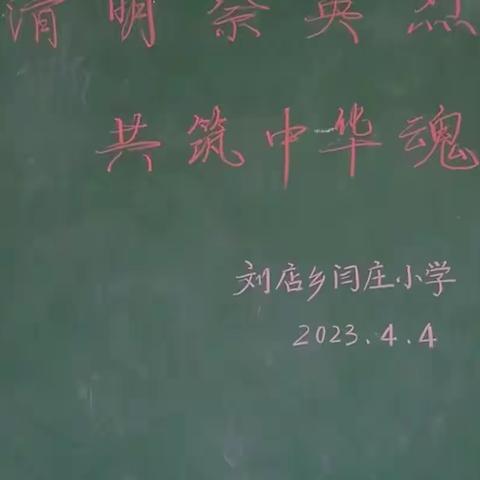 清明祭英烈
共筑中华魂
刘店乡闫庄小学
2023.4.4